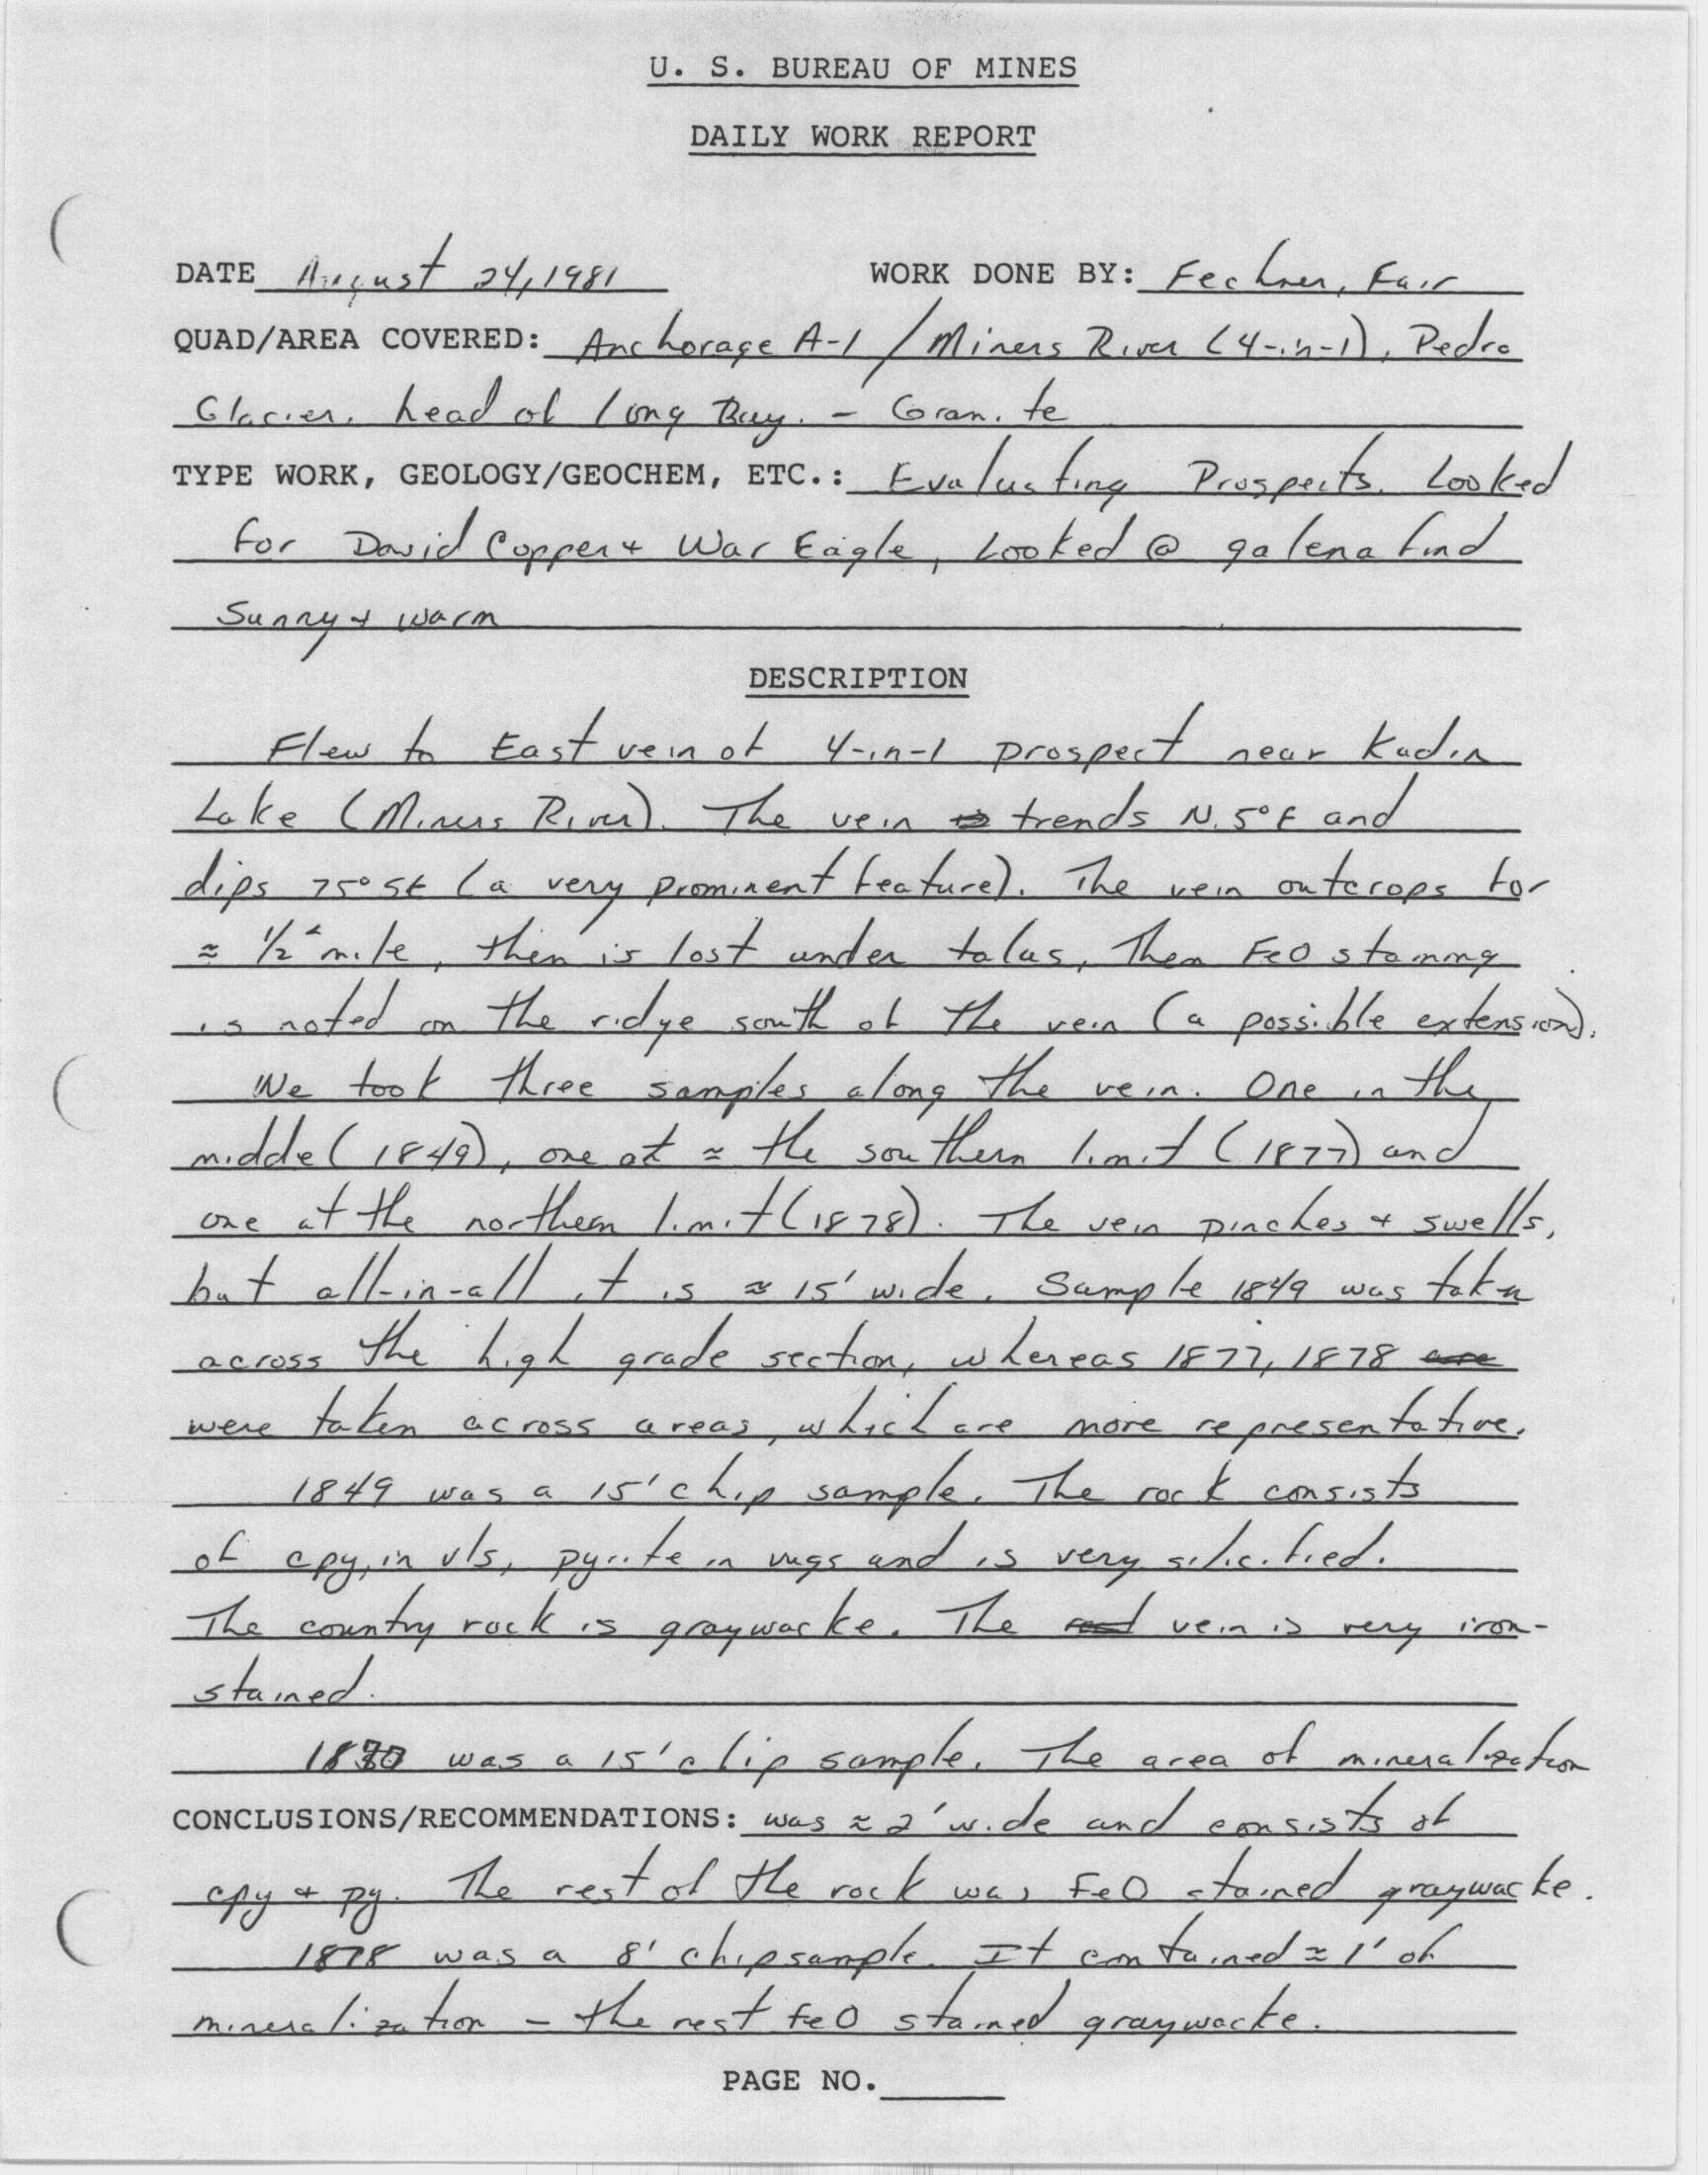 U. S. BUREAU OF MINES
DAILY WORK REPORT
DATE August 24, 1981 WORK DONE BY: Fechner, Fair
QUAD/AREA COVERED: Anchorage A-1 / Miners River (4-in-1), Pedro
Glacier, head of long Bay. - Granite
TYPE WORK, GEOLOGY/GEOCHEM, ETC.: Evaluating Prospects. Looked
for David Copper + War Eagle, Looked @ galena find
Sunny + warm
DESCRIPTION
Flew to East vein of 4-in-1 prospect near Kadin
Lake (Miners River). The vein is trends N. 5° E and
dips 75° SE (a very prominent feature). The vein outcrops for
≈ 1/2 mile, then is lost under talus, Then FeO staining
is noted on the ridge south of the vein (a possible extension).
We took three samples along the vein. One in the
middle (1849), one at ≈ the southern limit (1877) and
one at the northern limit (1878). The vein pinches + swells,
but all-in-all it is ≈ 15' wide. Sample 1849 was taken
across the high grade section, whereas 1877, 1878 are
were taken across areas, which are more representative.
1849 was a 15' chip sample. The rock consists
of cpy, in vls, pyrite in vugs and is very silicified.
The country rock is graywacke. The vein is very iron-
stained.
was a 15' chip sample. The area of mineralization
CONCLUSIONS/RECOMMENDATIONS: was ≈ 2' wide and consists of
cpy + py. The rest of the rock was FeO stained graywacke.
1878 was a 8' chip sample. It contained ≈ 1' of
mineralization - the rest FeO stained graywacke.
PAGE NO.